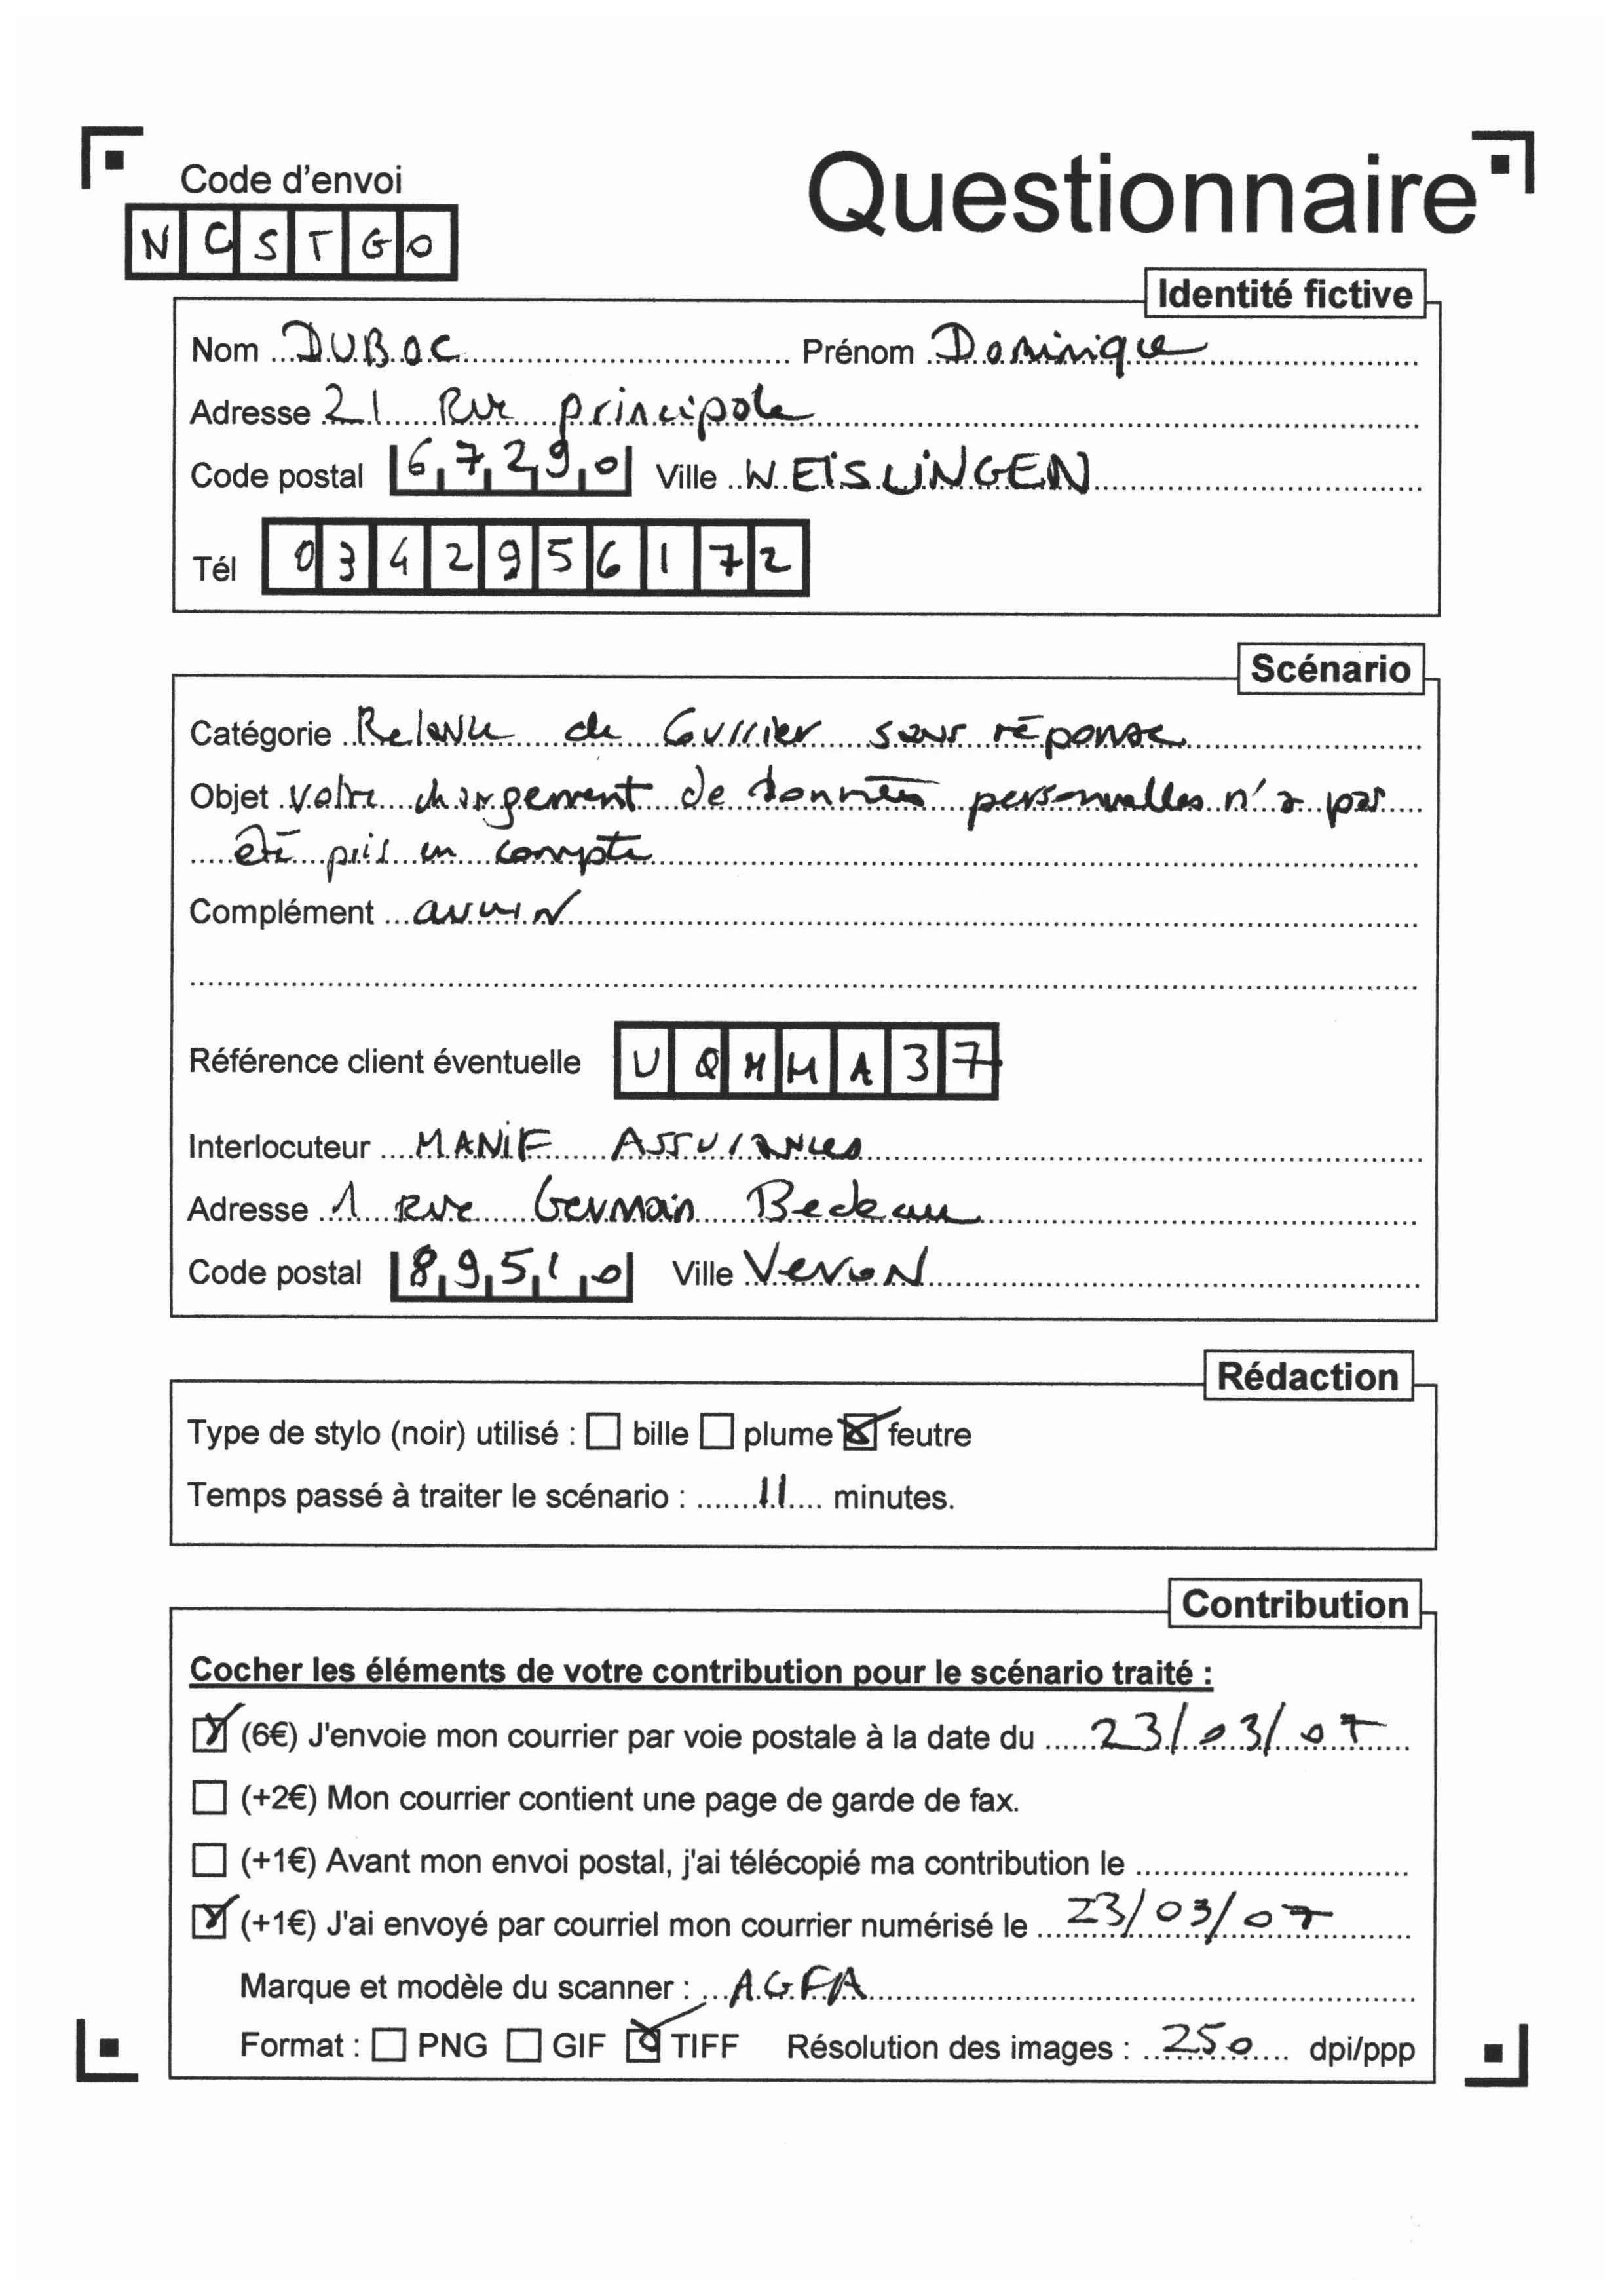 Code d'envoi
Questionnaire
N C S T G O
Identité fictive
Nom DUBOC Prénom Dominique
Adresse 21 Rue principale
Code postal 67290 Ville WEISLINGEN
Tél 0342956172
Scénario
Catégorie Relance de Courrier sans réponse
Objet Votre changement de données personnelles n'a pas
été pris en compte
Complément aucun
Référence client éventuelle U Q M M A 3 7
Interlocuteur MANIF ASSURANCES
Adresse 1 Rue Germain Bedeau
Code postal 89510 Ville Veron
Rédaction
Type de stylo (noir) utilisé : bille plume feutre
Temps passé à traiter le scénario : 11 minutes.
Contribution
Cocher les éléments de votre contribution pour le scénario traité :
(6€) J'envoie mon courrier par voie postale à la date du 23/03/07
(+2€) Mon courrier contient une page de garde de fax.
(+1€) Avant mon envoi postal, j'ai télécopié ma contribution le
(+1€) J'ai envoyé par courriel mon courrier numérisé le 23/03/07
Marque et modèle du scanner : AGFA
Format : PNG GIF TIFF Résolution des images : 250 dpi/ppp